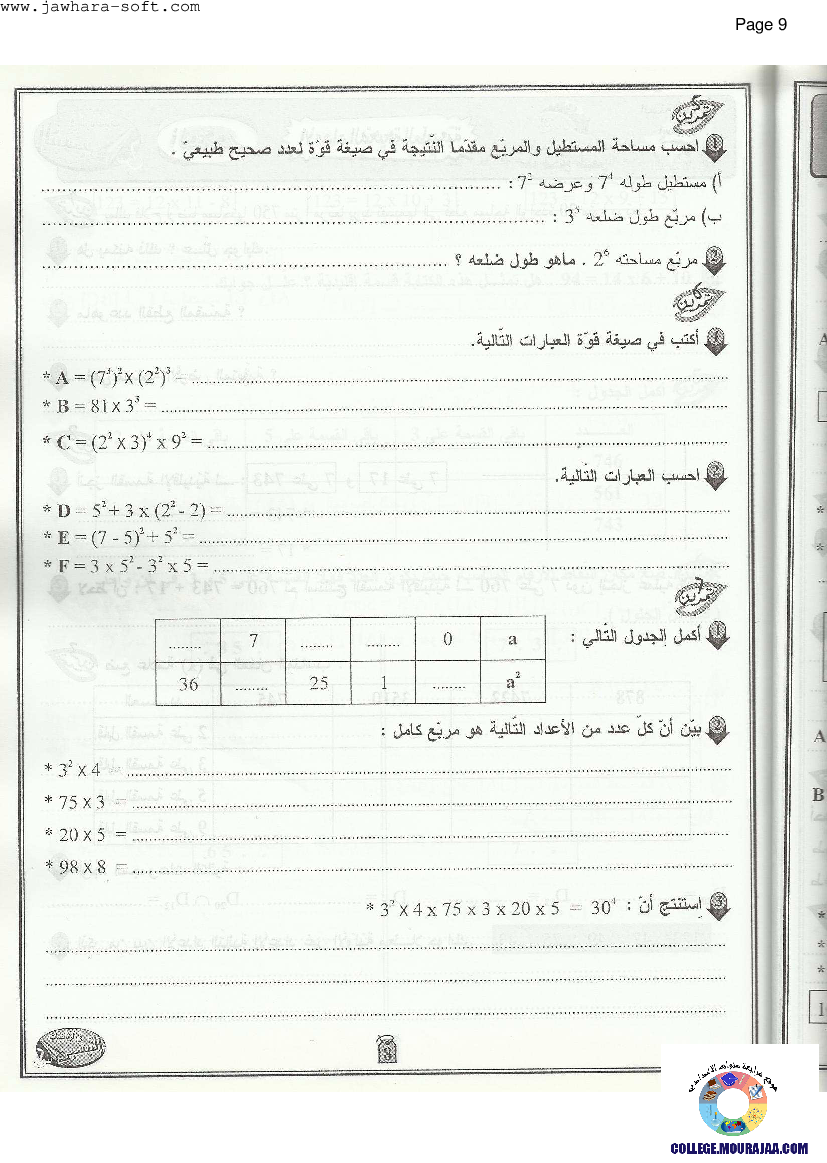 www.jawhara-soft.com
Page 9
تمرين 5
1 احسب مساحة المستطيل والمربّع مقدّما النّتيجة في صيغة قوّة لعدد صحيح طبيعيّ .
أ) مستطيل طوله 7⁴ وعرضه 7² : ........................................
ب) مربّع طول ضلعه 3⁵ : ........................................
2 مربّع مساحته 2⁶ . ماهو طول ضلعه ؟ ........................................
تمرين 6
1 أكتب في صيغة قوّة العبارات التّالية.
* A = (7³)² x (2²)³ = ........................................
* B = 81 x 3³ = ........................................
* C = (2² x 3)⁴ x 9² = ........................................
2 احسب العبارات التّالية.
* D = 5² + 3 x (2² - 2) = ........................................
* E = (7 - 5)² + 5² = ........................................
* F = 3 x 5² - 3² x 5 = ........................................
تمرين 7
1 أكمل الجدول التّالي :
........ 7 ........ ........ 0 a
36 ........ 25 1 ........ a²
2 بيّن أنّ كلّ عدد من الأعداد التّالية هو مربّع كامل :
* 3² x 4 ........................................
* 75 x 3 = ........................................
* 20 x 5 = ........................................
* 98 x 8 = ........................................
3 إستنتج أنّ : * 3² x 4 x 75 x 3 x 20 x 5 = 30⁴
........................................
........................................
........................................
3
موقع مراجعة
COLLEGE.MOURAJAA.COM